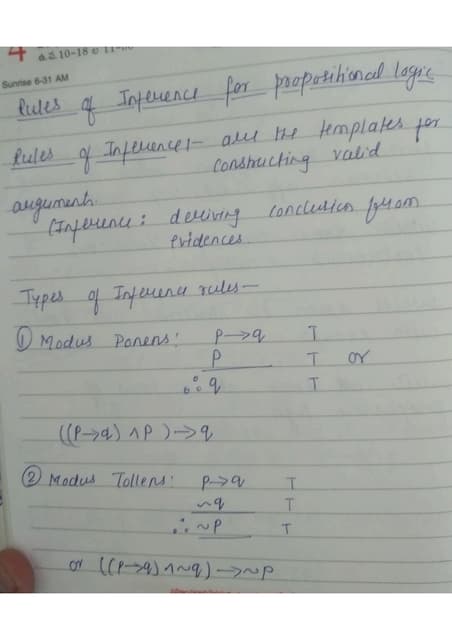 4
Sunrise 6-31 AM
Rules of Inference for propositional logic
Rules of Inference:- are the templates for
constructing valid
argument.
(Inference: deriving conclusion from
evidences.
Types of Inference rules-
① Modus Ponens: P→q T
P T or
∴ q T
((P→q) ∧P )→q
② Modus Tollens: P→q T
~q T
∴ ~P T
or ((P→q) ∧~q) →~P